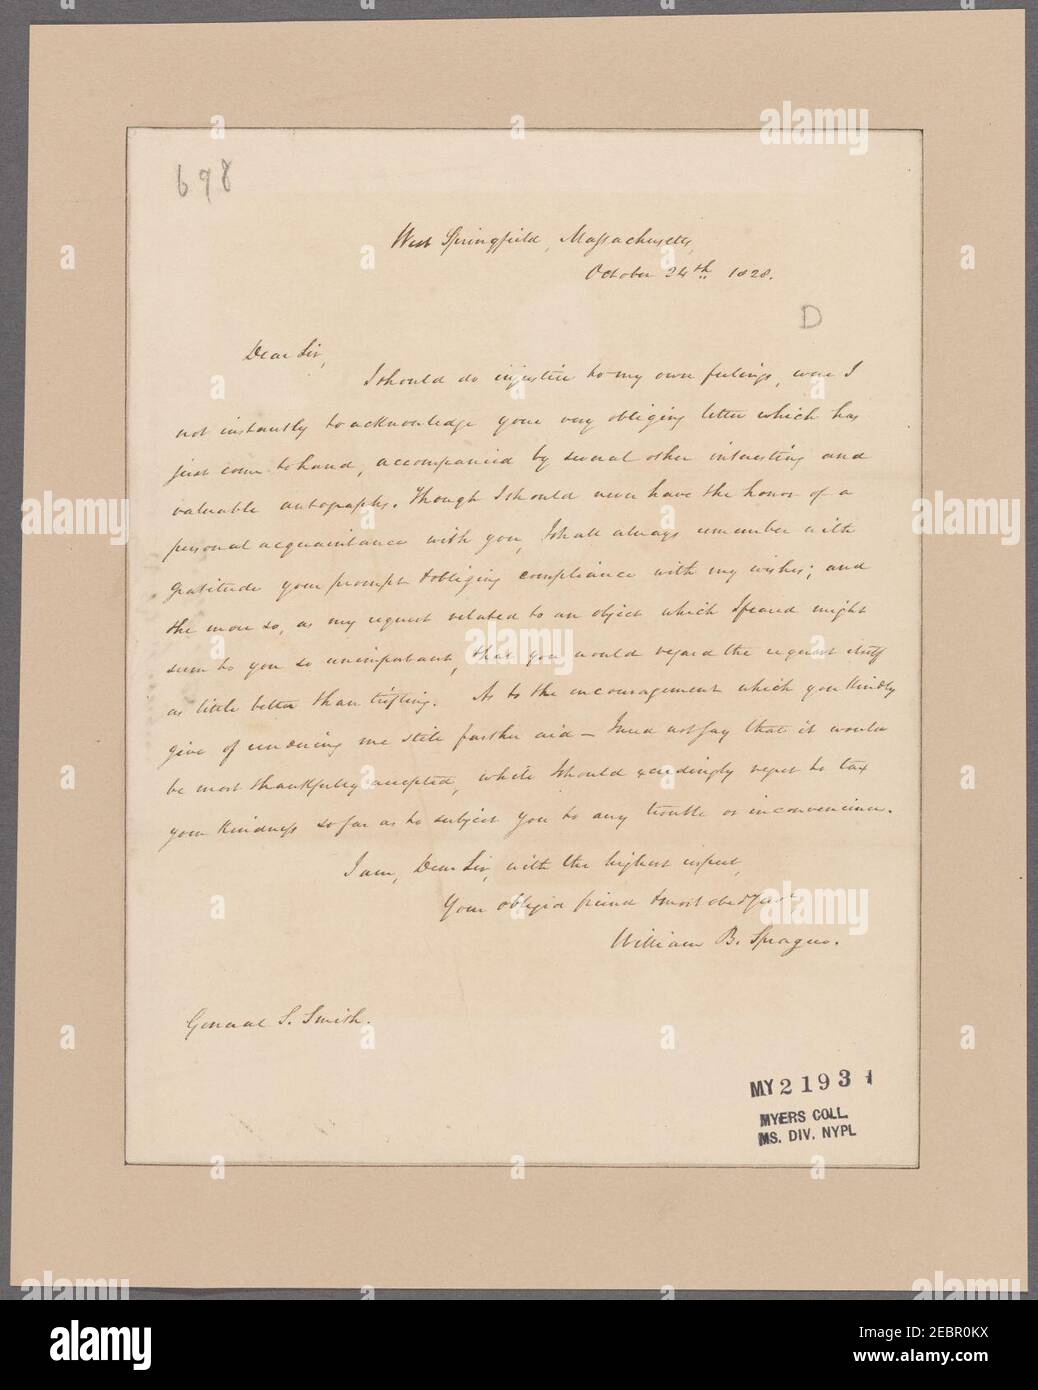 698
West Springfield, Massachusetts,
October 24th 1828.
D
Dear Sir,
I should do injustice to my own feelings, were I
not instantly to acknowledge your very obliging letter which has
just come to hand, accompanied by several other interesting and
valuable autographs. Though I should never have the honor of a
personal acquaintance with you, I shall always remember with
gratitude your prompt & obliging compliance with my wishes; and
the more so, as my request related to an object which I feared might
seem to you so unimportant, that you would regard the request itself
as little better than trifling. As to the encouragement which you kindly
give of rendering me still farther aid – I need not say that it would
be most thankfully accepted, while I should exceedingly regret to tax
your kindness so far as to subject you to any trouble or inconvenience.
I am, Dear Sir, with the highest respect,
Your obliged friend & most obedt Servt
William B. Sprague.
General S. Smith.
MY 2193
MYERS COLL.
MS. DIV. NYPL
alamy
alamy
Image ID: 2EBR0KX
www.alamy.com